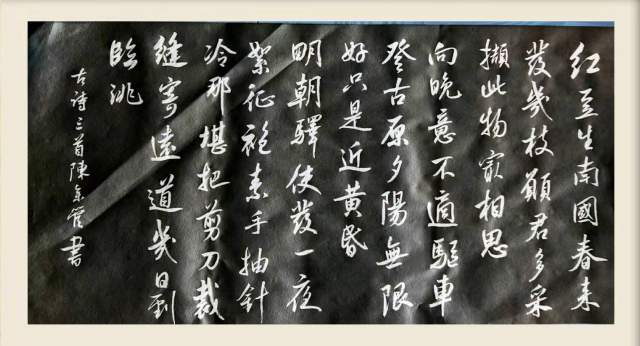 红豆生南國春来
發幾枝願君多采
擷此物最相思
向晚意不適驅車
登古原夕陽無限
好只是近黄昏
明朝驛使發一夜
絮征袍素手抽针
冷那堪把剪刀裁
縫寄遠道幾日到
臨洮
古诗三首陳
書